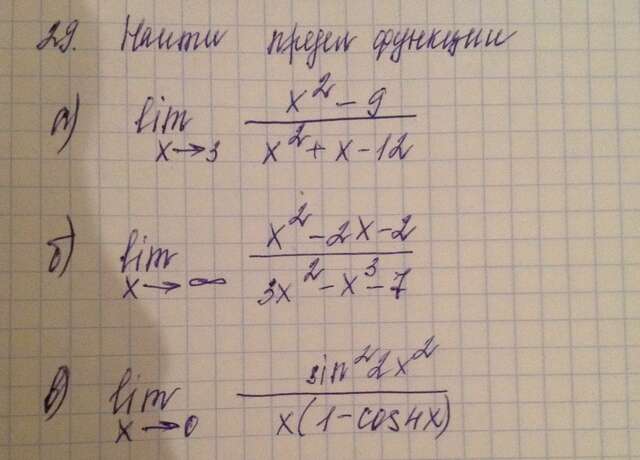 29. Наити предел функции
а) lim x→3 x²-9 / x²+x-12
б) lim x→∞ x²-2x-2 / 3x²-x³-7
в) lim x→0 sin²2x² / x(1-cos4x)